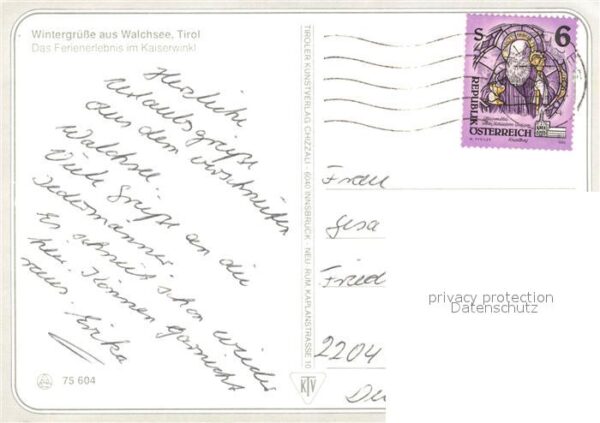 Wintergrüße aus Walchsee, Tirol
Das Ferienerlebnis im Kaiserwinkl
Herzliche
Urlaubsgrüße
aus dem verschneiten
Walchsee.
Viele Grüße an die
Jedermänner.
Es schneit schon wieder
hier. Können garnicht
raus. Erika
75 604
TIROLER KUNSTVERLAG CHIZZALI · 6040 INNSBRUCK - NEU-RUM KAPLANSTRASSE 10
KTV
S 6
REPUBLIK
ÖSTERREICH
Frau
Gesa
Fried
2204
privacy protection
Datenschutz